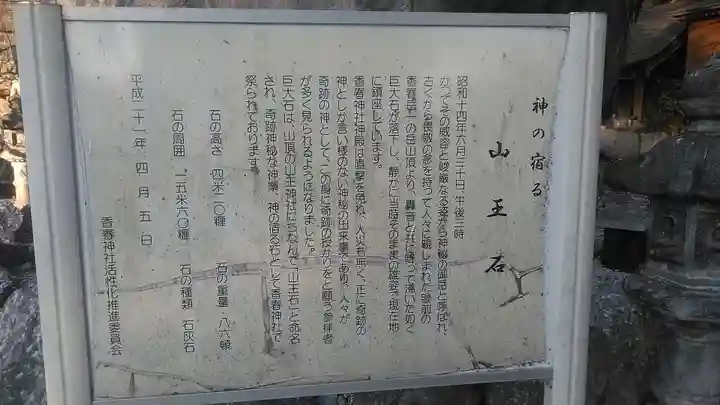 神の宿る
山王石
昭和十四年六月三十日、午後三時
かつてその威容と峻厳なる姿から神秘の御岳と呼ばれ、
古くから畏敬の念を持って人々に親しまれた
香春岳一の岳山頂より、轟音と共に
巨大石が落下し、静かに当時そのままの雄姿で現在地
に鎮座しています。
香春神社神殿は直撃を免れ、人災も無く、正に奇跡の
神としか言い様のない神秘の出来事であり、人々が
奇跡の神として、この身に奇跡の授かりをと願う参拝者
が多く見られるようになりました。
巨大石は、山頂の山王神社にちなんで「山王石」と命名
され、奇跡神秘な神業、神の宿る石として香春神社で
祭られております。
石の高さ 四米二〇糎 石の重量 八六噸
石の周囲 一五米六〇糎 石の種類 石灰石
平成二十一年四月五日
香春神社活性化推進委員会